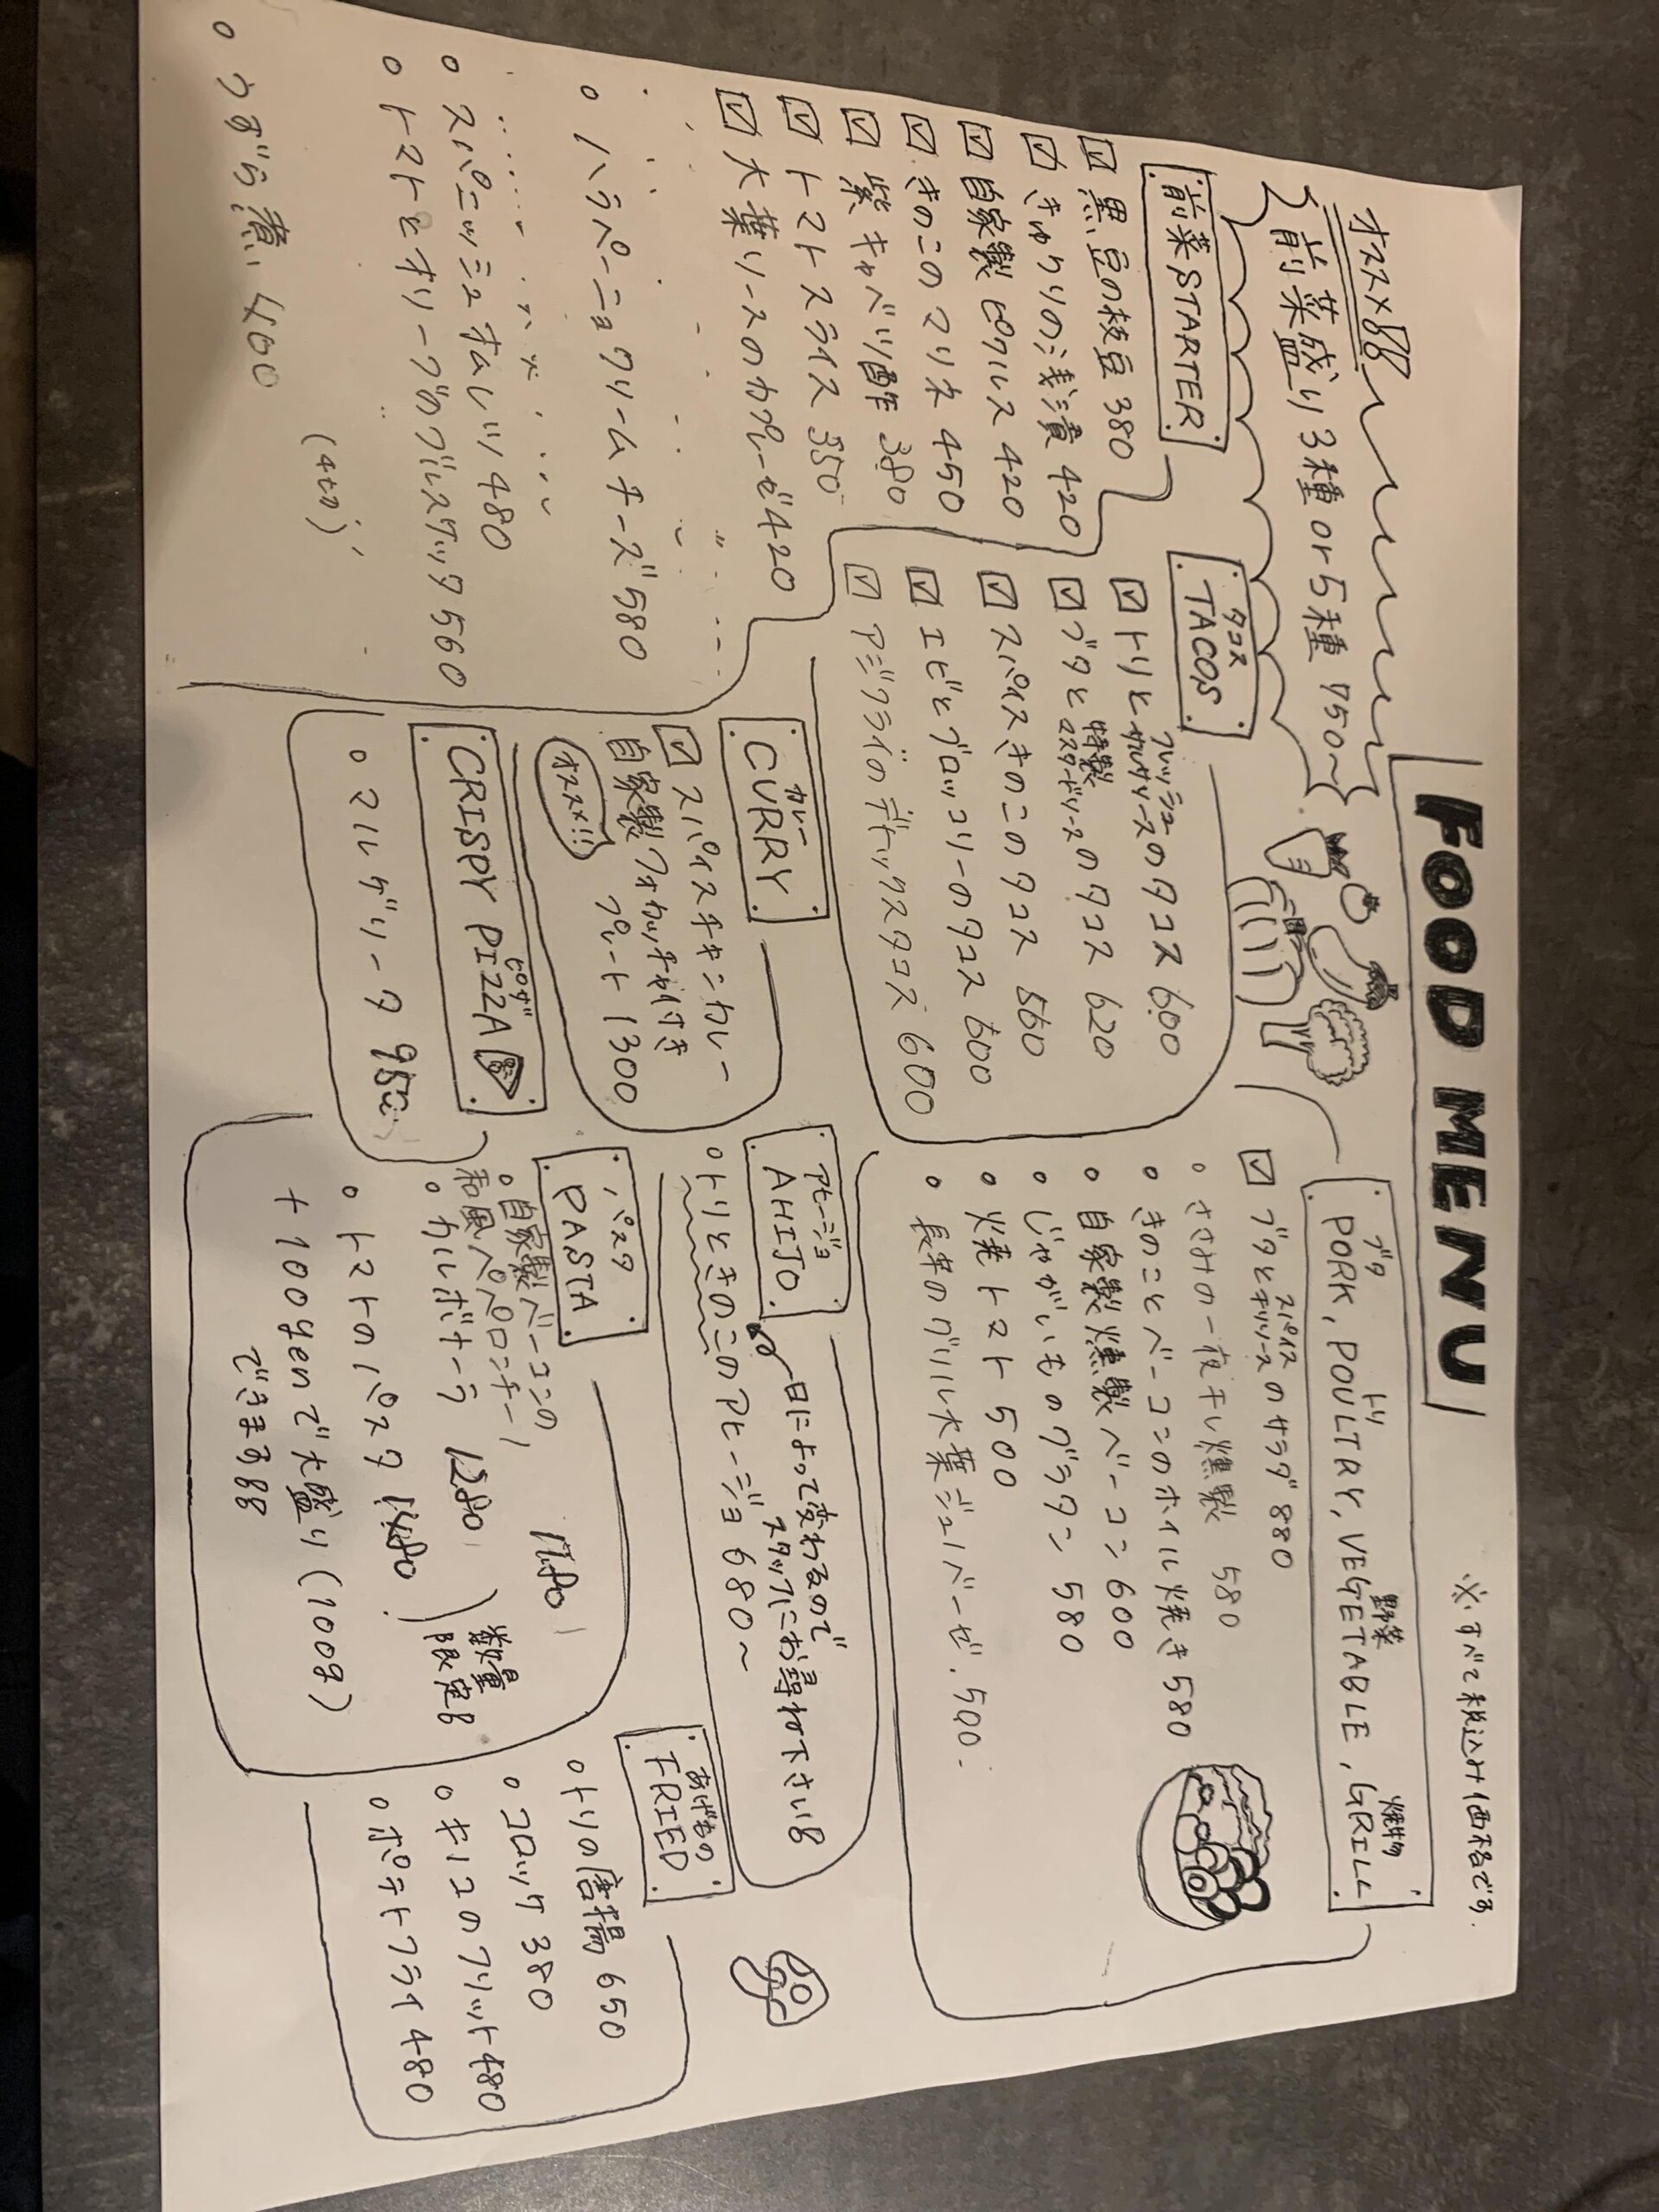 FOOD MENU
※すべて税込み価格です.
オススメ!!
前菜盛り3種or5種 750~
前菜STARTER
黒豆の枝豆 380
きゅうりの浅漬 420
自家製ピクルス 420
きのこのマリネ 450
紫キャベツ酢 380
トマトスライス 350
大葉ソースのカプレーゼ420
ハラペーニョクリームチーズ 580
スパニッシュオムレツ 480
トマトとオリーブのブルスケッタ 560
(4コ)
うずら煮 400
タコス
TACOS
フレッシュ
トリとサルサソースのタコス 600
特製
ブタとマスタードソースのタコス 620
スパイスきのこのタコス 560
エビとブロッコリーのタコス 600
アジフライのデトックスタコス 600
カレー
CURRY
スパイスチキンカレー
自家製フォカッチャ付き
オススメ!!
プレート 1300
ピザ
CRISPY PIZZA
マルゲリータ 980
ブタ トリ 野菜 焼物
PORK, POULTRY, VEGETABLE, GRILL
スパイス
ブタとチリソースのサラダ 880
ささみの一夜干し燻製 580
きのことベーコンのホイル焼き 580
自家製燻製ベーコン 600
じゃがいものグラタン 580
焼トマト 500
長芋のグリル大葉ジェノベーゼ. 500.
アヒージョ
AHIJO
日によって変わるので
スタッフにお尋ね下さい
トリときのこのアヒージョ 680~
パスタ
PASTA
自家製ベーコンの
和風ペペロンチーノ
カルボナーラ
トマトのパスタ
数量
限定
+100yenで大盛り(100g)
できます
あげもの
FRIED
トリの唐揚 650
コロッケ 380
キノコのフリット 480
ポテトフライ 480